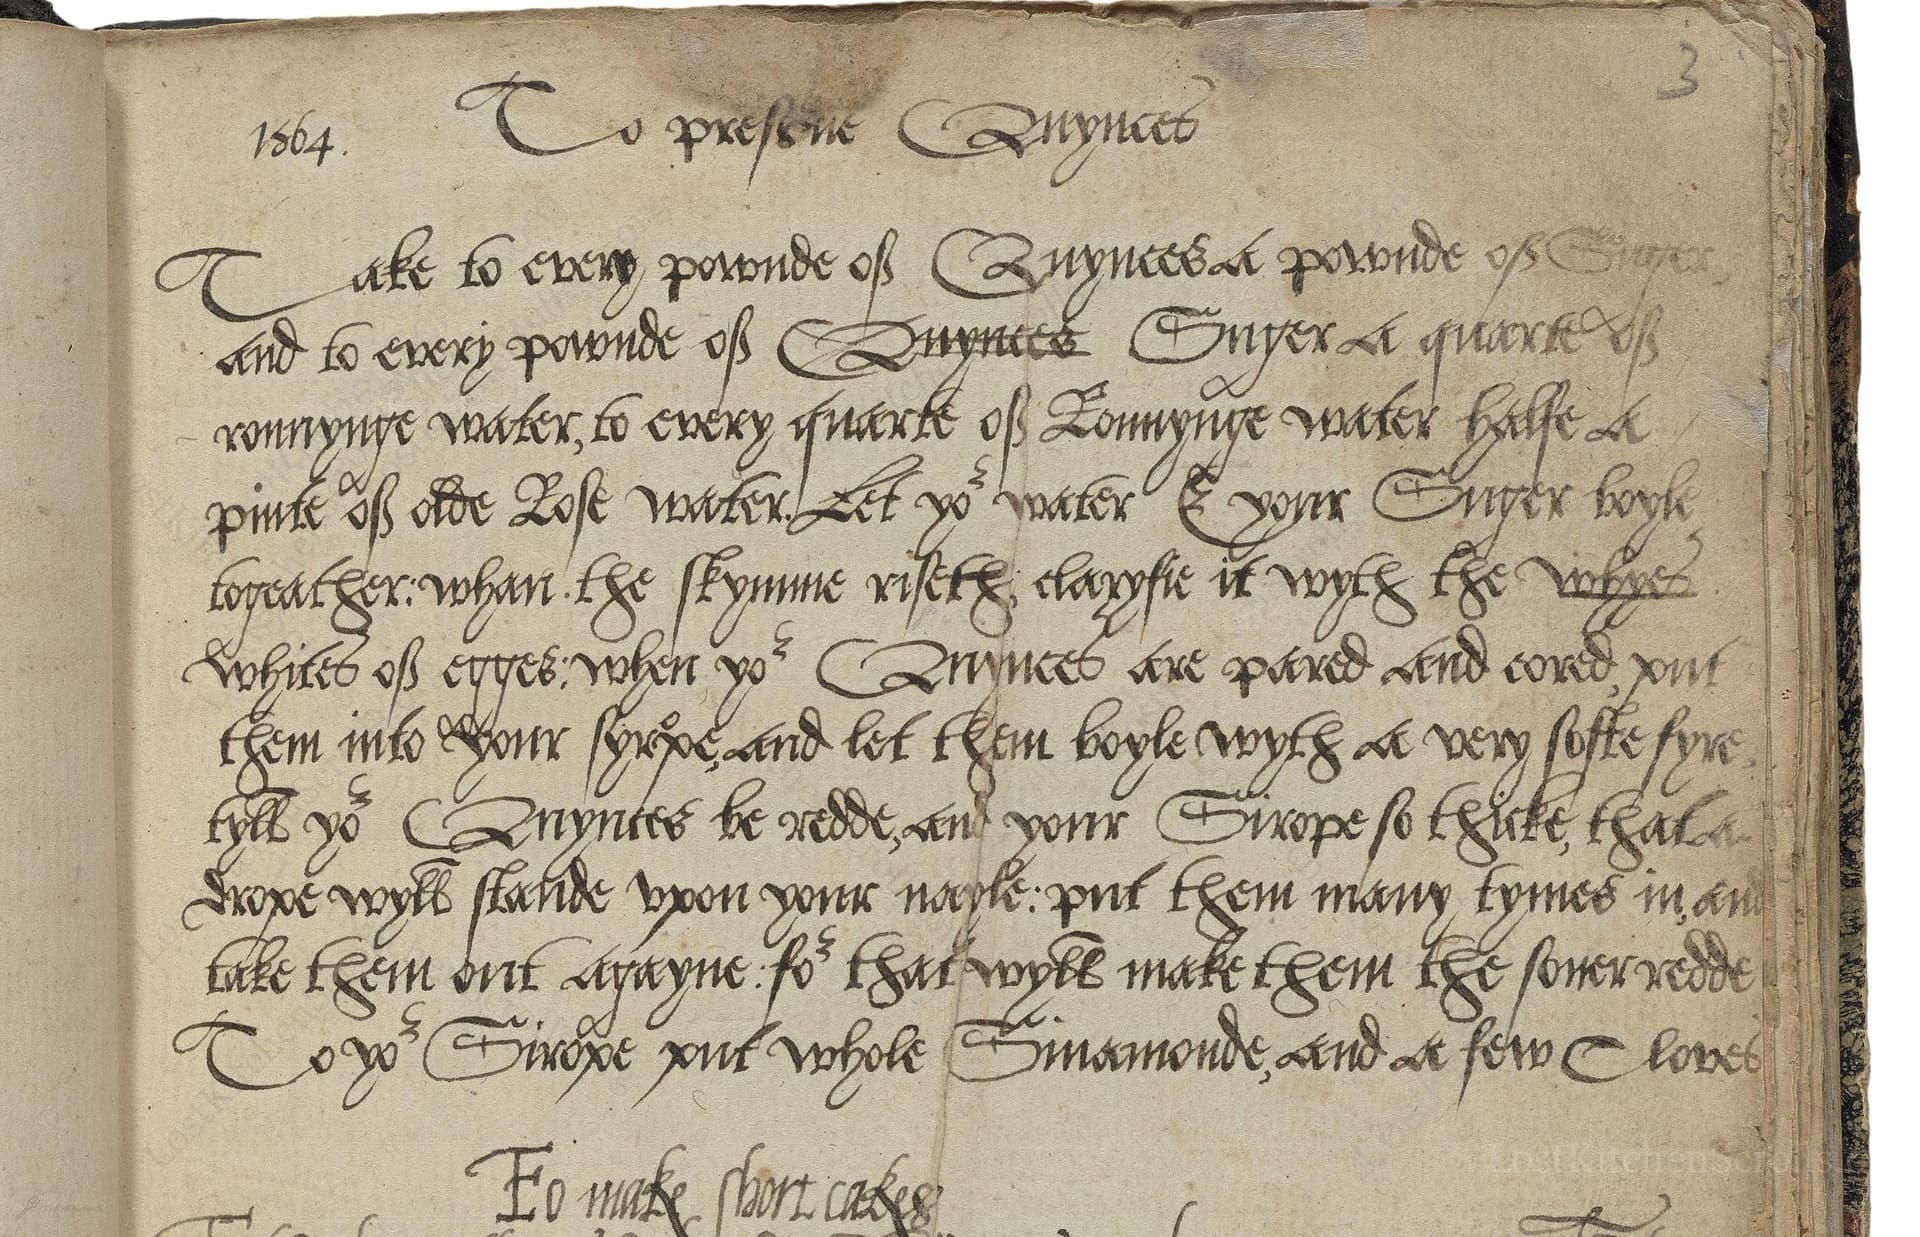 3
1864.
To preserue Quynces
Take to every pownde off Quynces a pownde off Suger
and to every pownde off Quynces Suger a quarte off
ronnynge water, to every quarte off Ronnynge water halfe a
pinte off olde Rose water. Let yor water & your Suger boyle
togeather: whan the skymme riseth, claryfie it wyth the whyes
whites off egges: when yor Quynces are pared and cored, put
them into your syrope, and let them boyle wyth a very softe fyre
tyll yor Quynces be redde, and your Sirope so thicke, that a
drope wyll stande vpon your nayle: put them many tymes in, and
take them out agayne: for that wyll make them the soner redde
To yor Sirope put whole Sinamonde, and a few Cloves
To make short cakes
LostKitchenScrolls